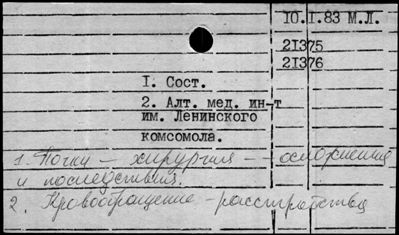 10.1.83 М.Л.
21375
21376
1. Сост.
2. Алт. мед. ин-т
им. Ленинского
комсомола.
1. Почки - хирургия -- осложнения
и последствия.
2. Кровообращение - расстройства